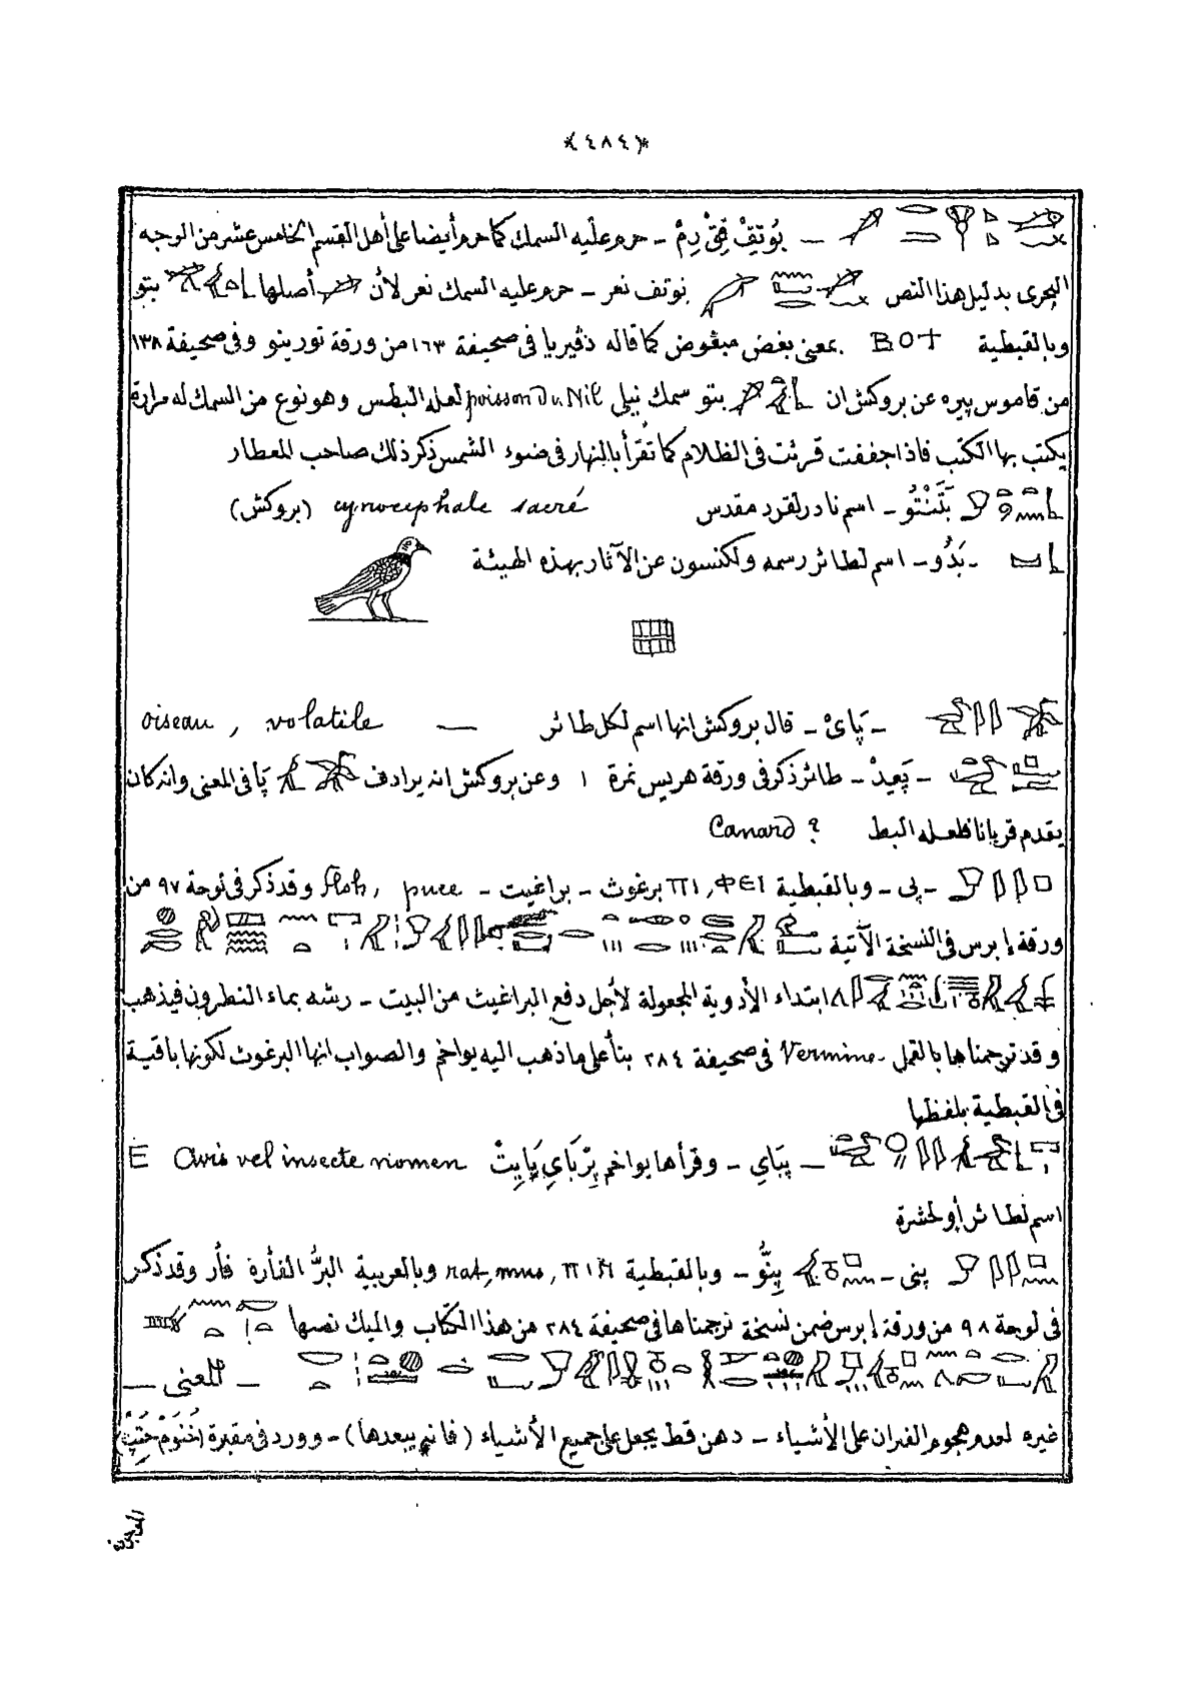 ﴿٤٨٤﴾
ـ بُوتِفْ قِتْ رِمْ ـ حرم عليه السمك كما حرم أيضا على أهل القسم الخامس عشر من الوجه
البحرى بدليل هذا النص نوتف نعر ـ حرم عليه السمك نعر لأن أصلها بتو
وبالقبطية BOT بمعنى بغض مبغوض كما قاله ذڤيريا فى صحيفة ١٦٣ من ورقة تورينو وفى صحيفة ١٣٨
من قاموس پيره عن بروكش ان بتو سمك نيلى poisson Du Nil لعله البطس وهو نوع من السمك له مرارة
يكتب بها الكتب فاذا جففت قرئت فى الظلام كما تقرأ بالنهار فى ضوء الشمس ذكر ذلك صاحب المعطار
بَتَنْتُو ـ اسم نادر لقرد مقدس cynocephale sacré (بروكش)
ـ بَدُو ـ اسم لطائر رسمه ولكنسون عن الآثار بهذه الهيئة
ـ پَاىْ ـ قال بروكش انها اسم لكل طائر — oiseau, volatile
ـ پَعِيدْ ـ طائر ذكر فى ورقة هريس نمرة ١ وعن بروكش انه يرادف پَا فى المعنى وانه كان
يقدم قربانا فلعله البط Canard ?
ـ پى ـ وبالقبطية ΠΙ, ΦΕΙ برغوث ـ براغيت ـ floh, puce وقد ذكر فى لوحة ٩٧ من
ورقة إبرس فى النسخة الآتية
ابتداء الأدوية المجعولة لأجل دفع البراغيث من البيت ـ رشه بماء النطرون فيذهب
وقد ترجمناها بالقمل ـ Vermine فى صحيفة ٢٨٤ بنأ على ما ذهب اليه يواخم والصواب انها البرغوث لكونها باقية
فى القبطية بلفظها
ـ پِبَاي ـ وقرأها يواخم پِرْبَاي پَايِتْ Avis vel insecte nomen E
اسم لطائر أو لحشرة
پنى ـ پِنُّو ـ وبالقبطية ΠΙΝ rat, mus, وبالعربية البرُّ الفأرة فأر وقد ذكر
فى لوحة ٩٨ من ورقة إبرس ضمن نسخة ترجمناها فى صحيفة ٢٨٤ من هذا الكتاب واليك نصها
ـ المعنى ـ
غيره لعدم هجوم الفيران على الأشياء ـ دهن قط يجعل على جميع الأشياء (فانهم يبعدها) ـ وورد فى مقبرة (خْنُومْ حُتِپْ)